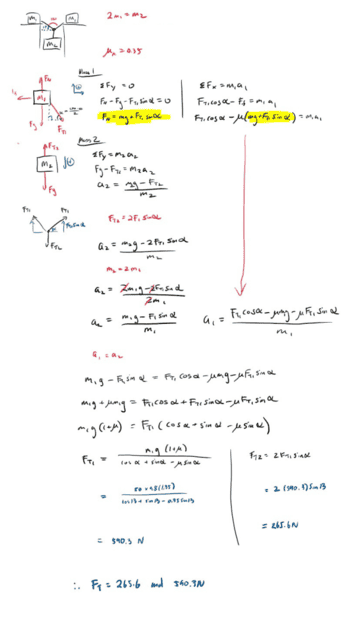 m₁ m₁
2m₁ = m₂
m₂
μₖ = 0.35
Mass 1
Fₙ
m₁
F_g F_T₁
ΣF_y = 0
Fₙ - F_g - F_T₁ sinα = 0
Fₙ = mg + F_T₁ sinα
ΣFₓ = m₁a₁
F_T₁ cosα - F_f = m₁a₁
F_T₁ cosα - μ(mg + F_T₁ sinα) = m₁a₁
Mass 2
m₂
F_g
ΣF_y = m₂a₂
F_g - F_T₂ = m₂a₂
a₂ = m₂g - F_T₂ / m₂
F_T₂ = 2F_T₁ sinα
F_T₁ F_T₁
F_T₂
a₂ = m₂g - 2F_T₁ sinα / m₂
m₂ = 2m₁
a₂ = 2m₁g - 2F_T₁ sinα / 2m₁
a₂ = m₁g - F_T₁ sinα / m₁
a₁ = F_T₁ cosα - μmg - μF_T₁ sinα / m₁
a₁ = a₂
m₁g - F_T₁ sinα = F_T₁ cosα - μmg - μF_T₁ sinα
m₁g + μm₁g = F_T₁ cosα + F_T₁ sinα - μF_T₁ sinα
m₁g (1+μ) = F_T₁ (cosα + sinα - μ sinα)
F_T₁ = m₁g (1+μ) / cosα + sinα - μ sinα
= 590.3 N
F_T2 = 2F_T₁ sinα
= 2 (590.3) sin13
= 265.6 N
∴ F_T = 265.6 and 590.3N